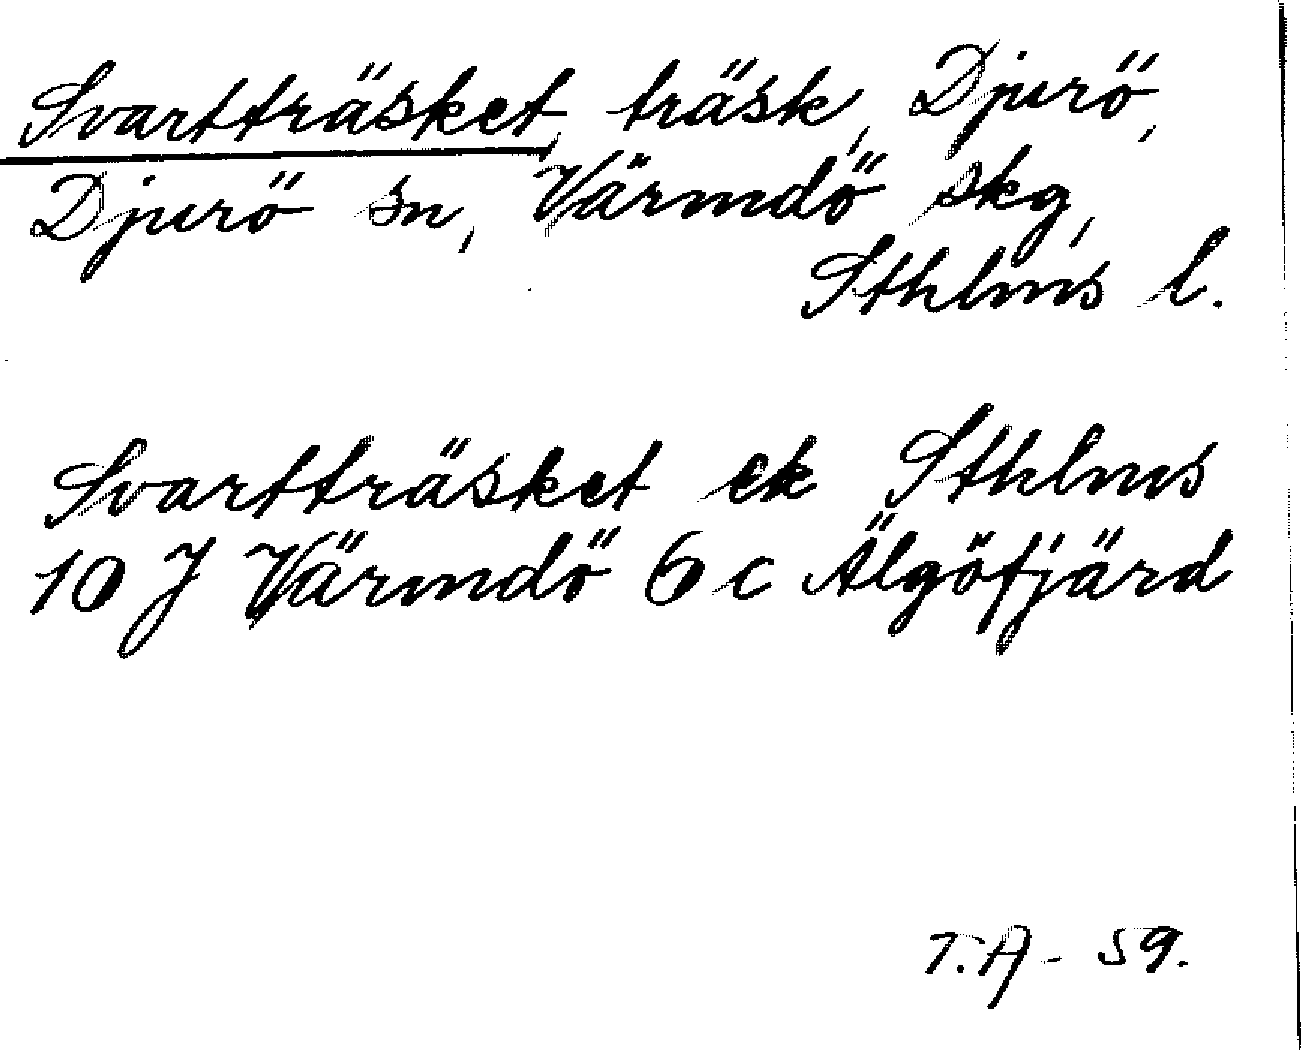 Svartträsket, träsk, Djurö,
Djurö sn, Värmdö skg,
Sthlms l.
Svartträsket ek Sthlms
10 J Värmdö 6 c Älgöfjärd
T.A - 59.